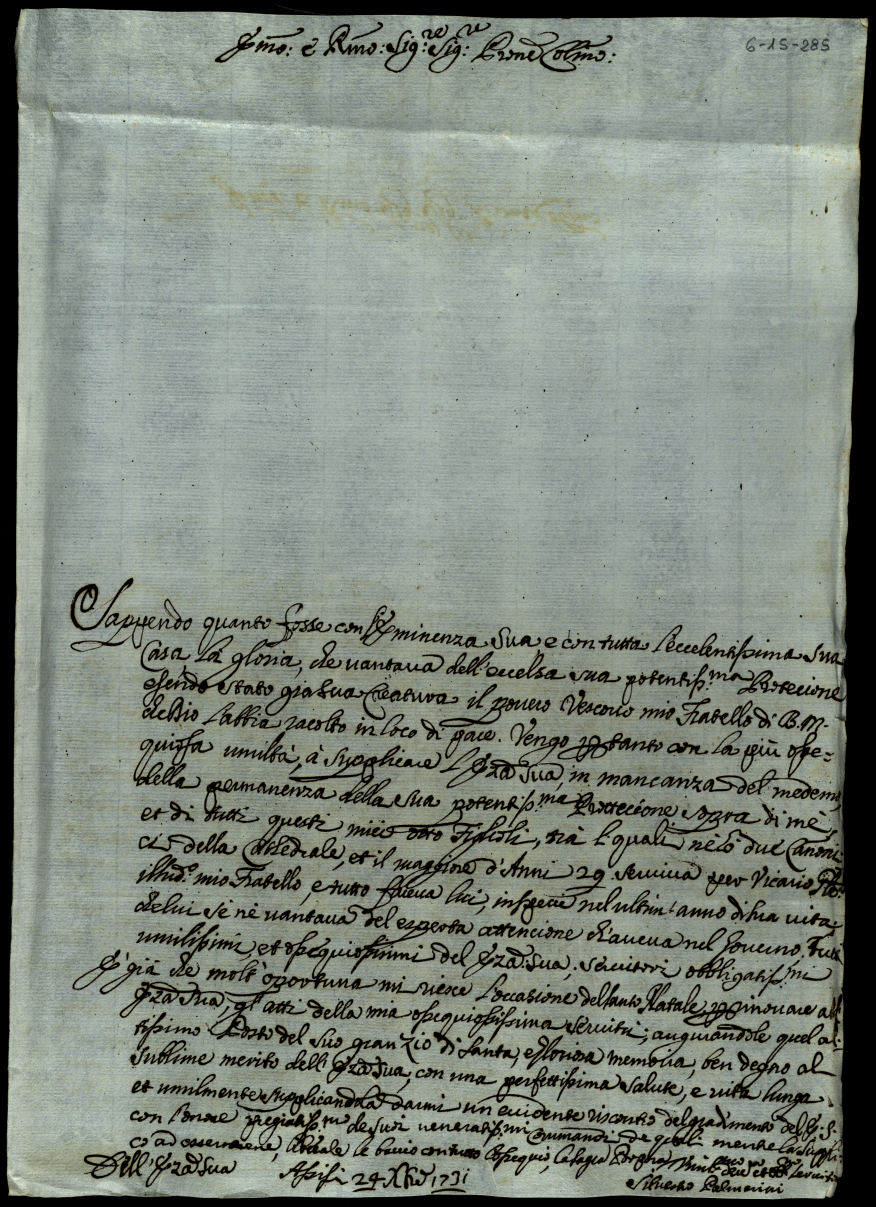 6-15-285
Emo: e Rmo: Sig:re Sig:re Prone Colmo:
Sappendo quanto fosse con l'Eminenza Sua e con tutta l'eccelentissima sua
Casa la gloria, che vantava dell'eccelsa sua potentiss.ma Protecione
esendo stato gia sua Creatura il povero Vescovo mio Fratello di B. M.
che Dio l'abbia racolto in loco di pace. Vengo per tanto con la più osse=
quiosa umiltà, à supplicare l'Emza Sua, in mancanza del medemo,
della permanenza della sua potentiss.ma Protecione sopra di mè,
et di tutti questi miei otto Figlioli, trà l quali nè sò due Canoni:
ci della Catedrale, et il maggiore d'Anni 29 serviva per Vicario
mio Fratello, e tutto faceva lui, in specie nel ultim' anno di sua vita,
che lui se nè vantava del esperta attencione ch'aveva nel Governo, Tutti
umilissimi, et ossequiosissimi del Emza: Sua; servitori obbligatiss.mi
E già che molt'oportuna mi riesce l'occasione del santo Natale per rinovare all
Emza Sua, gl'atti della mia ossequiosissima servitù; auguriandole quel al:
tissimo Posto del suo gran Zio di Santa, e gloriosa memoria, ben degno al
sublime merito dell'Emza Sua, con una perfettissima salute, e vita lunga
et umilmente supplicandola darmi un evidente riscontro del gradimento del E: S:
con l'onore pregiatiss.mo de suoi veneratiss.mi Comandi, de quali mente la suppli:
co ad essermene, le bacio con tutto Ossequio, la sagra Porpora
Dell'Emza Sua Asisi 24 Xbre 1731
Silvestro Palmerini